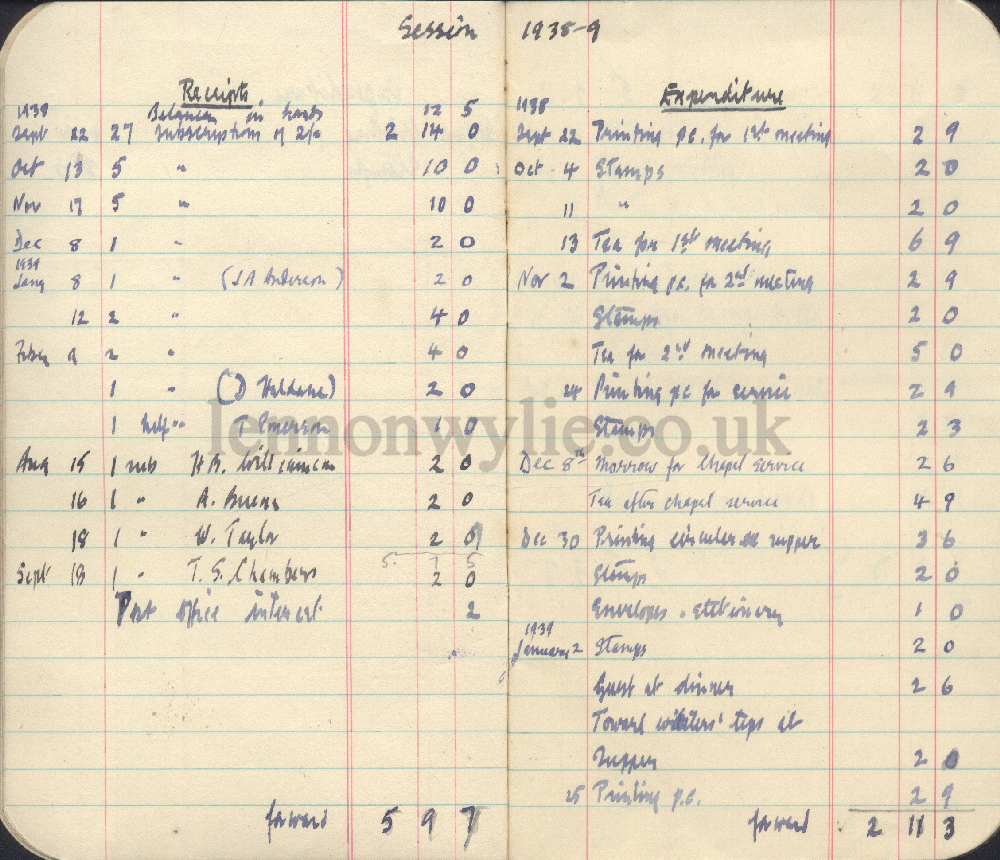 Session 1938-9
Receipts
1938 Balance in hands 12 5
Sept 22 27 Subscriptions of 2/- 2 14 0
Oct 13 5 " 10 0
Nov 17 5 " 10 0
Dec 8 1 " 2 0
1939
Jany 8 1 " (J A Anderson) 2 0
12 2 " 4 0
Feby 9 2 " 4 0
1 " (D Haldane) 2 0
1 half " T Emerson 1 0
Aug 15 1 sub H.B. Williamson 2 0
16 1 " A. 2 0
18 1 " W. Taylor 2 0
5. 7 5
Sept 18 1 " T. S. Chambers 2 0
Post office interest 2
forward 5 9 7
Expenditure
1938
Sept 22 Printing p.c. for 1st meeting 2 9
Oct 4 Stamps 2 0
11 " 2 0
13 Tea for 1st meeting 6 9
Nov 2 Printing p.c. for 2nd meeting 2 9
Stamps 2 0
Tea for 2nd meeting 5 0
24 Printing pc for service 2 9
Stamps 2 3
Dec 8th Morrow for Chapel service 2 6
Tea after chapel service 4 9
Dec 30 Printing circular re supper 3 6
Stamps 2 0
Envelopes & stationery 1 0
1939
January 2 Stamps 2 0
Guest at dinner 2 6
Toward waiters' tips at
Supper 2 0
25 Printing p.c. 2 9
forward 2 11 3
lennonwylie.co.uk